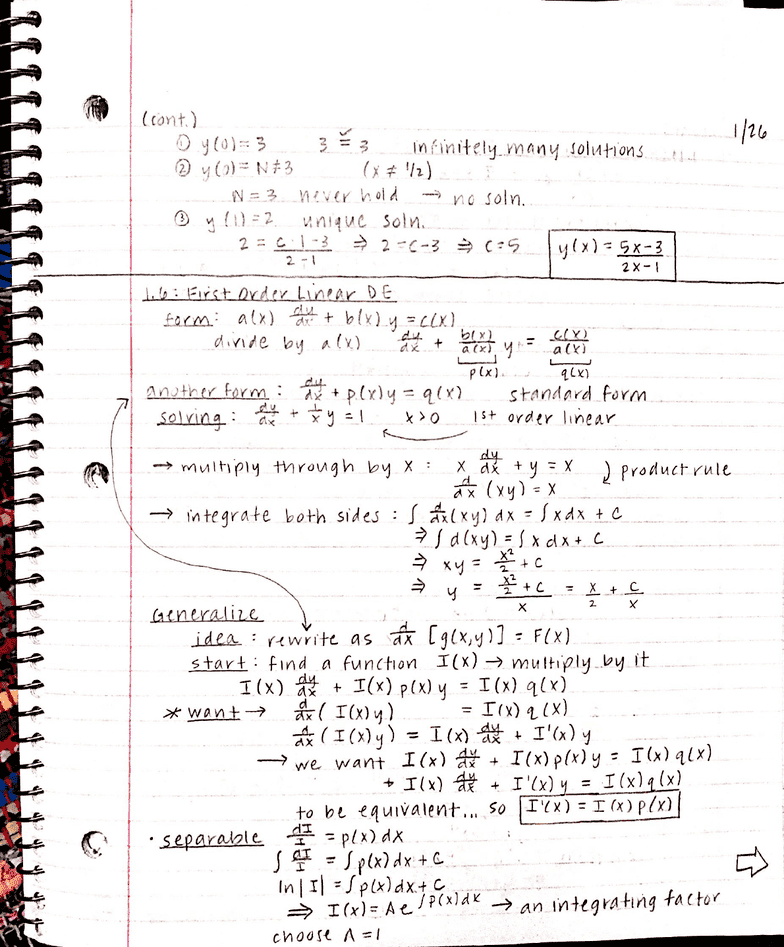 (cont.)
1/26
① y(0)=3 3 ≟ 3 infinitely many solutions
② y(0)=N≠3 (x ≠ 1/2)
N=3 never hold → no soln.
③ y(1)=2 unique soln.
2 = (c·1-3)/(2-1) ⇒ 2=c-3 ⇒ c=5 y(x) = (5x-3)/(2x-1)
1.6: First Order Linear DE
form: a(x) dy/dx + b(x) y = c(x)
divide by a(x) dy/dx + b(x)/a(x) y = c(x)/a(x)
p(x) q(x)
another form: dy/dx + p(x)y = q(x) standard form
solving: dy/dx + 1/x y = 1 x>0 1st order linear
→ multiply through by x: x dy/dx + y = x product rule
d/dx (xy) = x
→ integrate both sides: ∫ d/dx(xy) dx = ∫xdx + C
⇒ ∫ d(xy) = ∫ x dx + C
⇒ xy = x²/2 + C
⇒ y = (x²/2 + C)/x = x/2 + C/x
Generalize
idea: rewrite as d/dx [g(x,y)] = F(x)
start: find a function I(x) → multiply by it
I(x) dy/dx + I(x) p(x) y = I(x) q(x)
* want → d/dx ( I(x)y ) = I(x) q(x)
d/dx ( I(x)y ) = I(x) dy/dx + I'(x) y
→ we want I(x) dy/dx + I(x)p(x)y = I(x) q(x)
+ I(x) dy/dx + I'(x) y = I(x)q(x)
to be equivalent... so I'(x) = I(x)p(x)
· separable dI/I = p(x) dx
∫ dI/I = ∫p(x) dx + C
ln|I| = ∫p(x)dx + C
⇒ I(x) = Ae^∫p(x)dx → an integrating factor
choose A=1